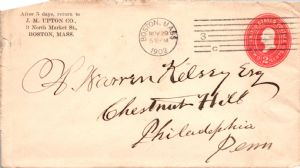 After 5 days, return to
J. M. UPTON CO.,
9 North Market St.,
BOSTON, MASS.
BOSTON, MASS
NOV 29
1902
3
C
2
A. Warren Kelsey Esq
Chestnut Hill
Philadelphia
Penn